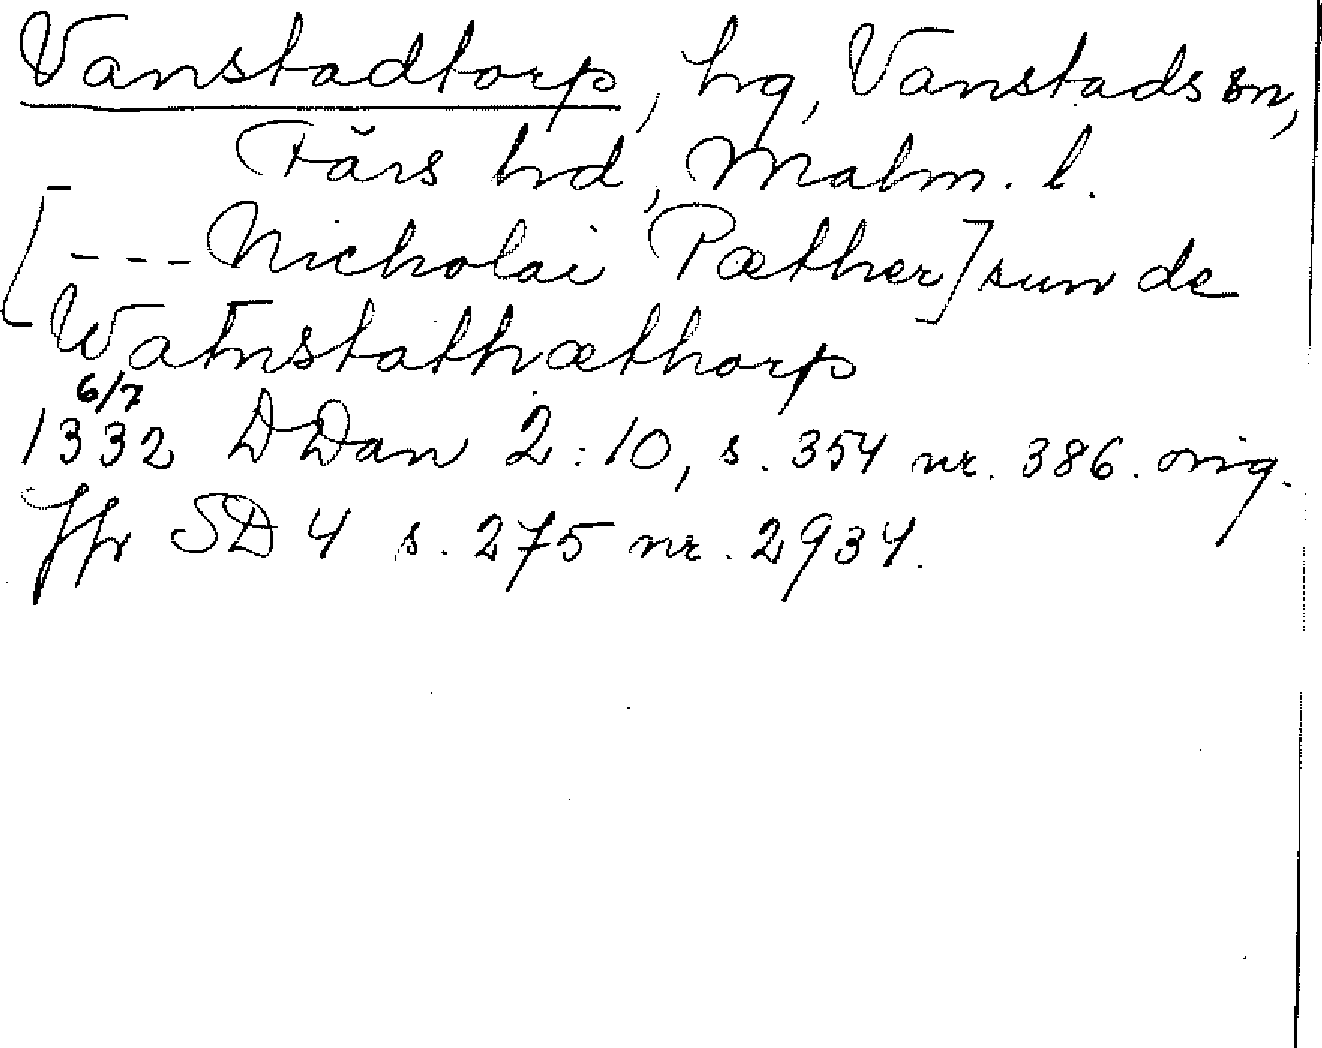 Vanstadtorp, hg, Vanstads sn,
Färs hd, Malm. l.
[--- Nicholai Pæther] sun de
Watnstathæthorp
6/7
1332 DDan 2:10, s. 354 nr. 386. orig.
Jfr SD 4 s. 275 nr. 2934.